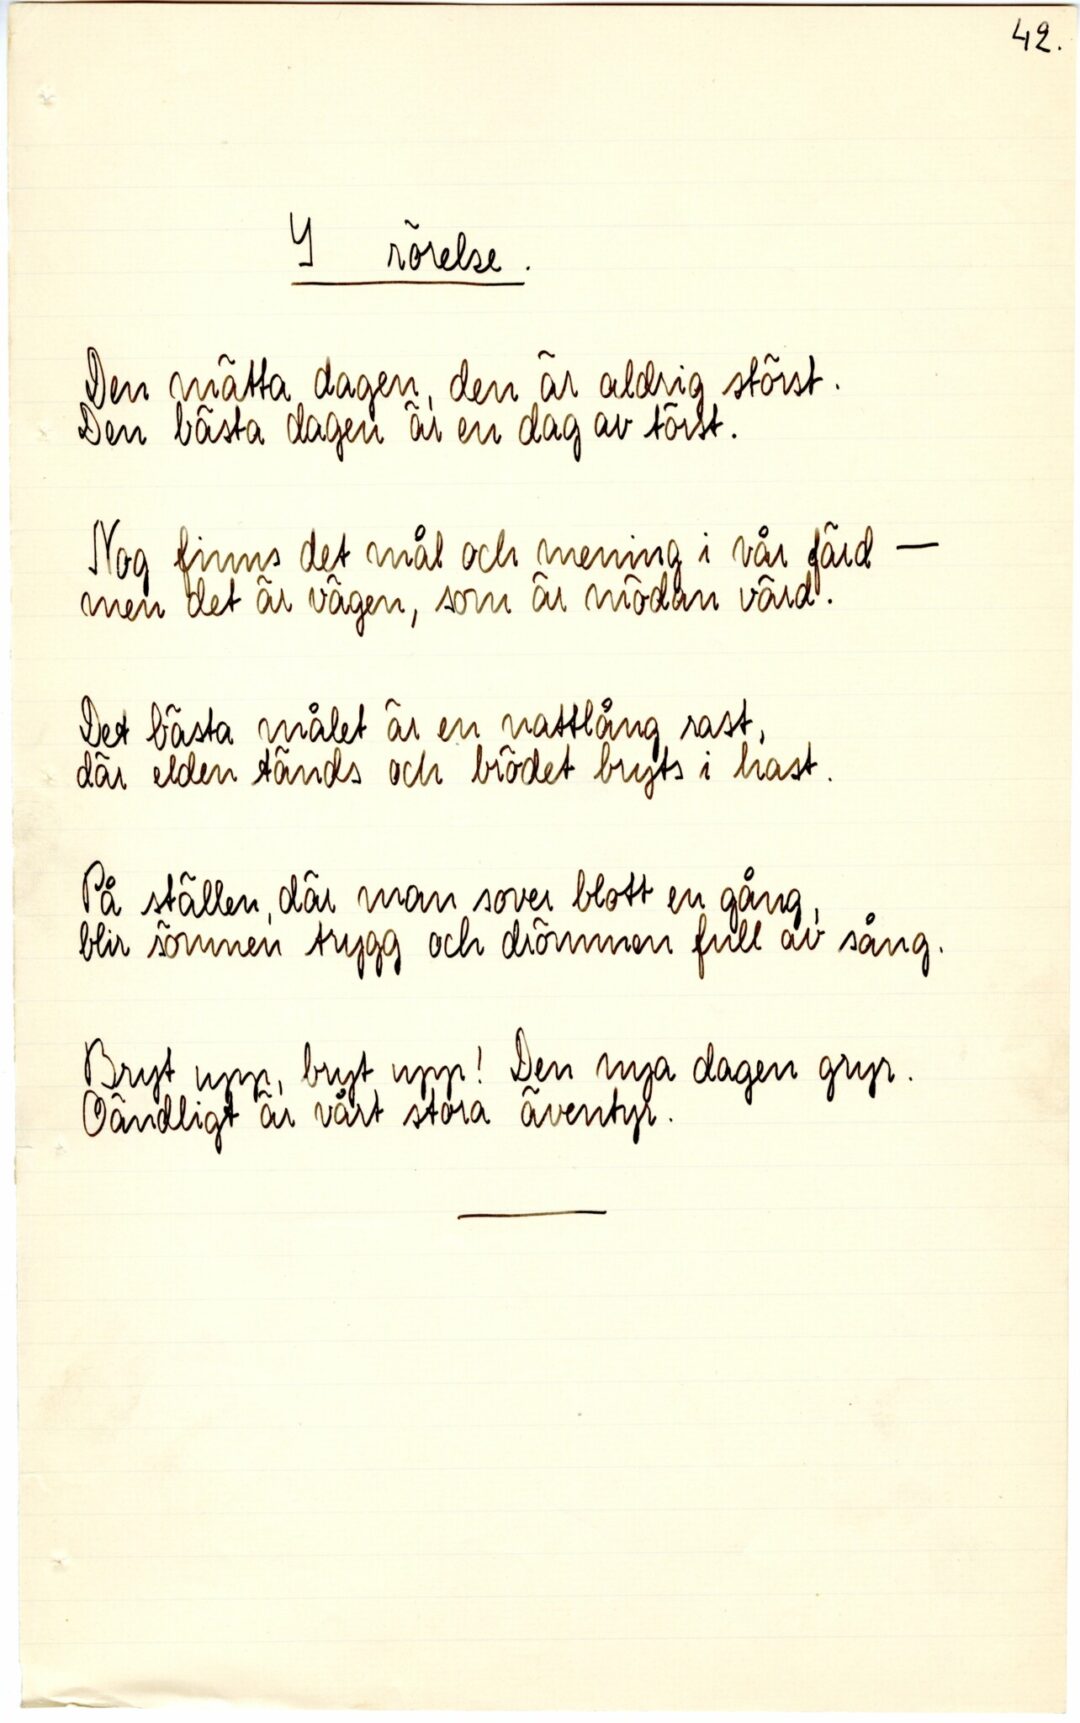 42.
I rörelse.
Den mätta dagen, den är aldrig störst.
Den bästa dagen är en dag av törst.
Nog finns det mål och mening i vår färd —
men det är vägen, som är mödan värd.
Det bästa målet är en nattlång rast,
där elden tänds och brödet bryts i hast.
På ställen, där man sover blott en gång,
blir sömnen trygg och drömmen full av sång.
Bryt upp, bryt upp! Den nya dagen gryr.
Oändligt är vårt stora äventyr.